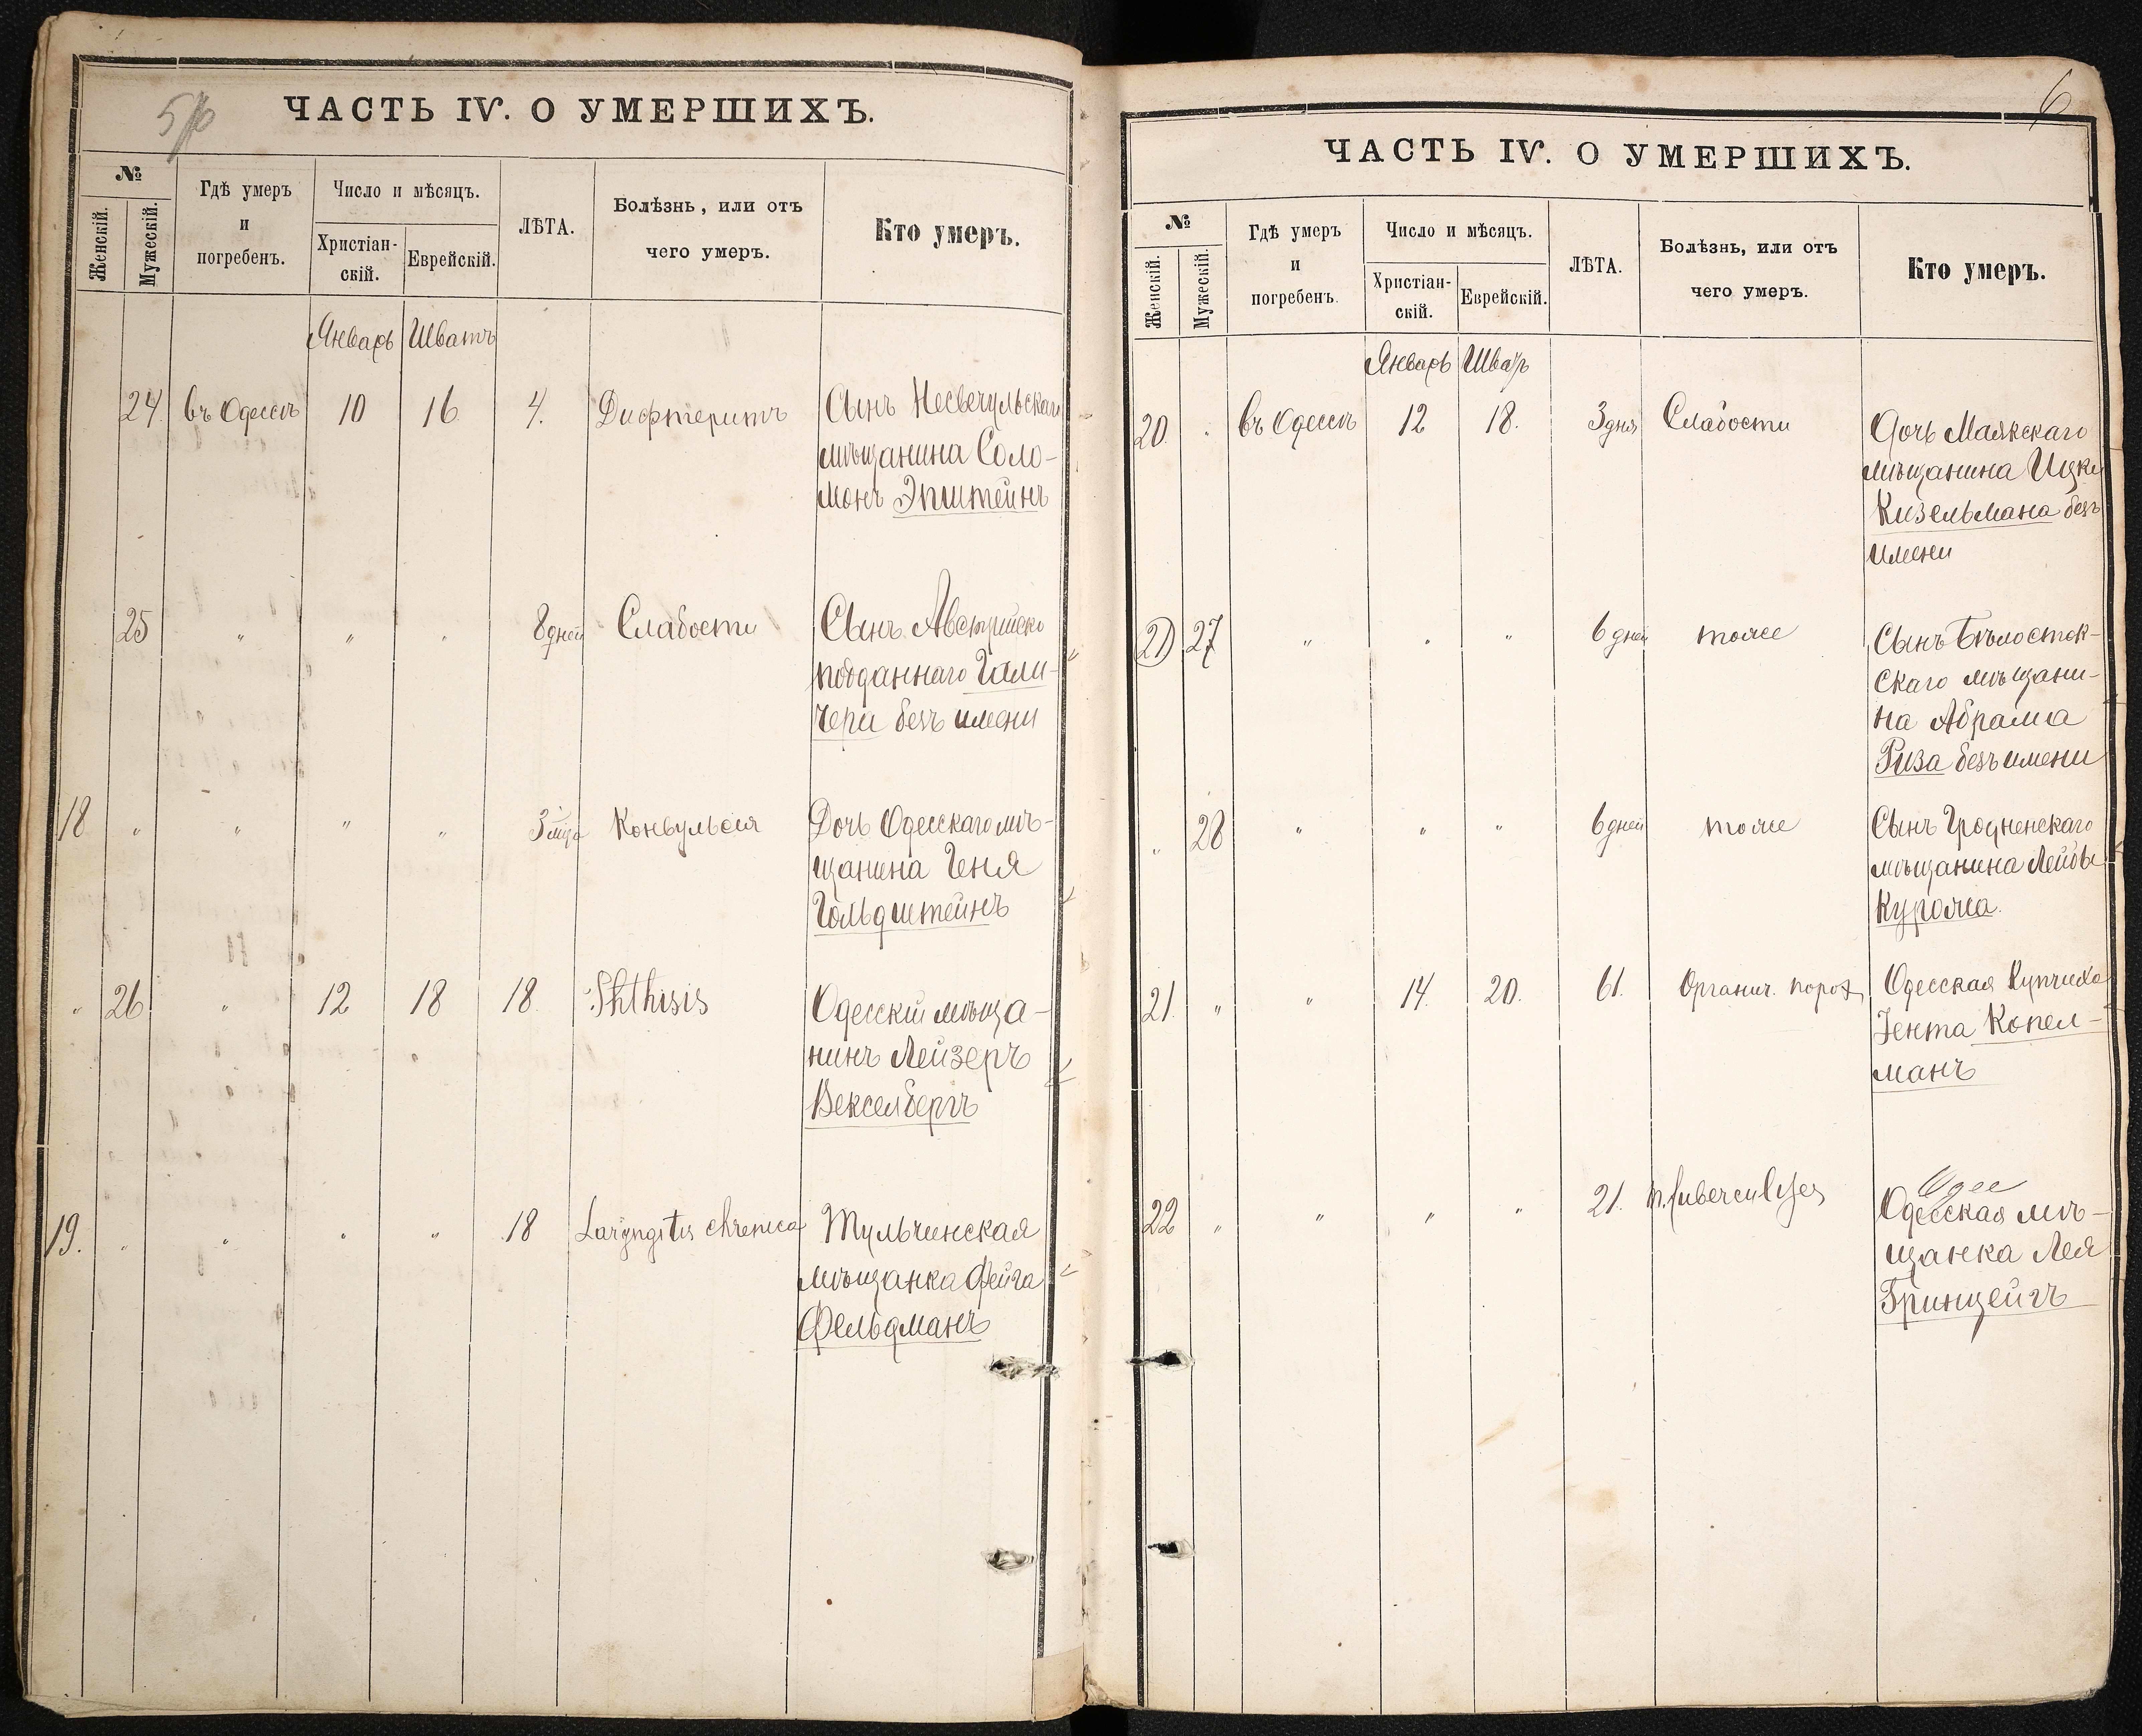 5
ЧАСТЬ IV. О УМЕРШИХЪ.
№
Женскій.
Мужескій.
Гдѣ умеръ
и
погребенъ.
Число и мѣсяцъ.
Христіан-
скій.
Еврейскій.
ЛѢТА.
Болѣзнь, или отъ
чего умеръ.
Кто умеръ.
Январь Шватъ
24 въ Одессѣ 10 16 4. Дифтеритъ Сынъ
мѣщанина Соло-
монъ Эпштейнъ
25 " " " 8 дней Слабости Сынъ Австрійско
подданнаго Гали-
чера безъ имени
18 " " " " 3 мѣс Конвульсія Дочь Одесскаго мѣ-
щанина Геня
Гольдштейнъ
" 26 " 12 18 18 Phthisis Одесскій мѣща-
нинъ Лейзеръ
Векселбергъ
19. " " " " 18 Laryngitis chronica Тульчинская
мѣщанка Фейга
Фельдманъ
6
ЧАСТЬ IV. О УМЕРШИХЪ.
№
Женскій.
Мужескій.
Гдѣ умеръ
и
погребенъ.
Число и мѣсяцъ.
Христіан-
скій.
Еврейскій.
ЛѢТА.
Болѣзнь, или отъ
чего умеръ.
Кто умеръ.
Январь
20. " въ Одессѣ 12 18. 3 дня Слабости Дочь Маякскаго
мѣщанина Ицки
Кизельмана безъ
имени
21 27 " " " 6 дней тоже Сынъ Бѣлосток-
скаго мѣщани-
на Абрама
Риза безъ имени
" 28 " " " 6 дней тоже Сынъ Гродненскаго
мѣщанина Лейбы
Курожа.
21. " " 14. 20. 61. Органич. порок Одесская Купчиха
Зента Копел-
манъ
22 " " " " 21. Одес
Одесская мѣ-
щанка Лея
Гринцейгъ